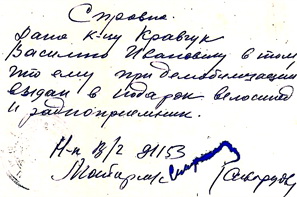 Справка.
Дана к-ну Кравчук
Василию Ивановичу в том
что ему при демобилизации
выдан в подарок велосипед
и радиоприемник.
Н-к В/Ч 21153